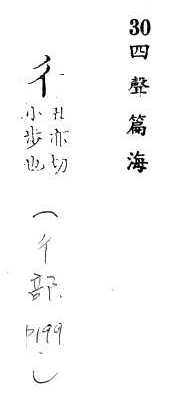 30四聲篇海
彳丑亦切
小步也
(彳部
P199)